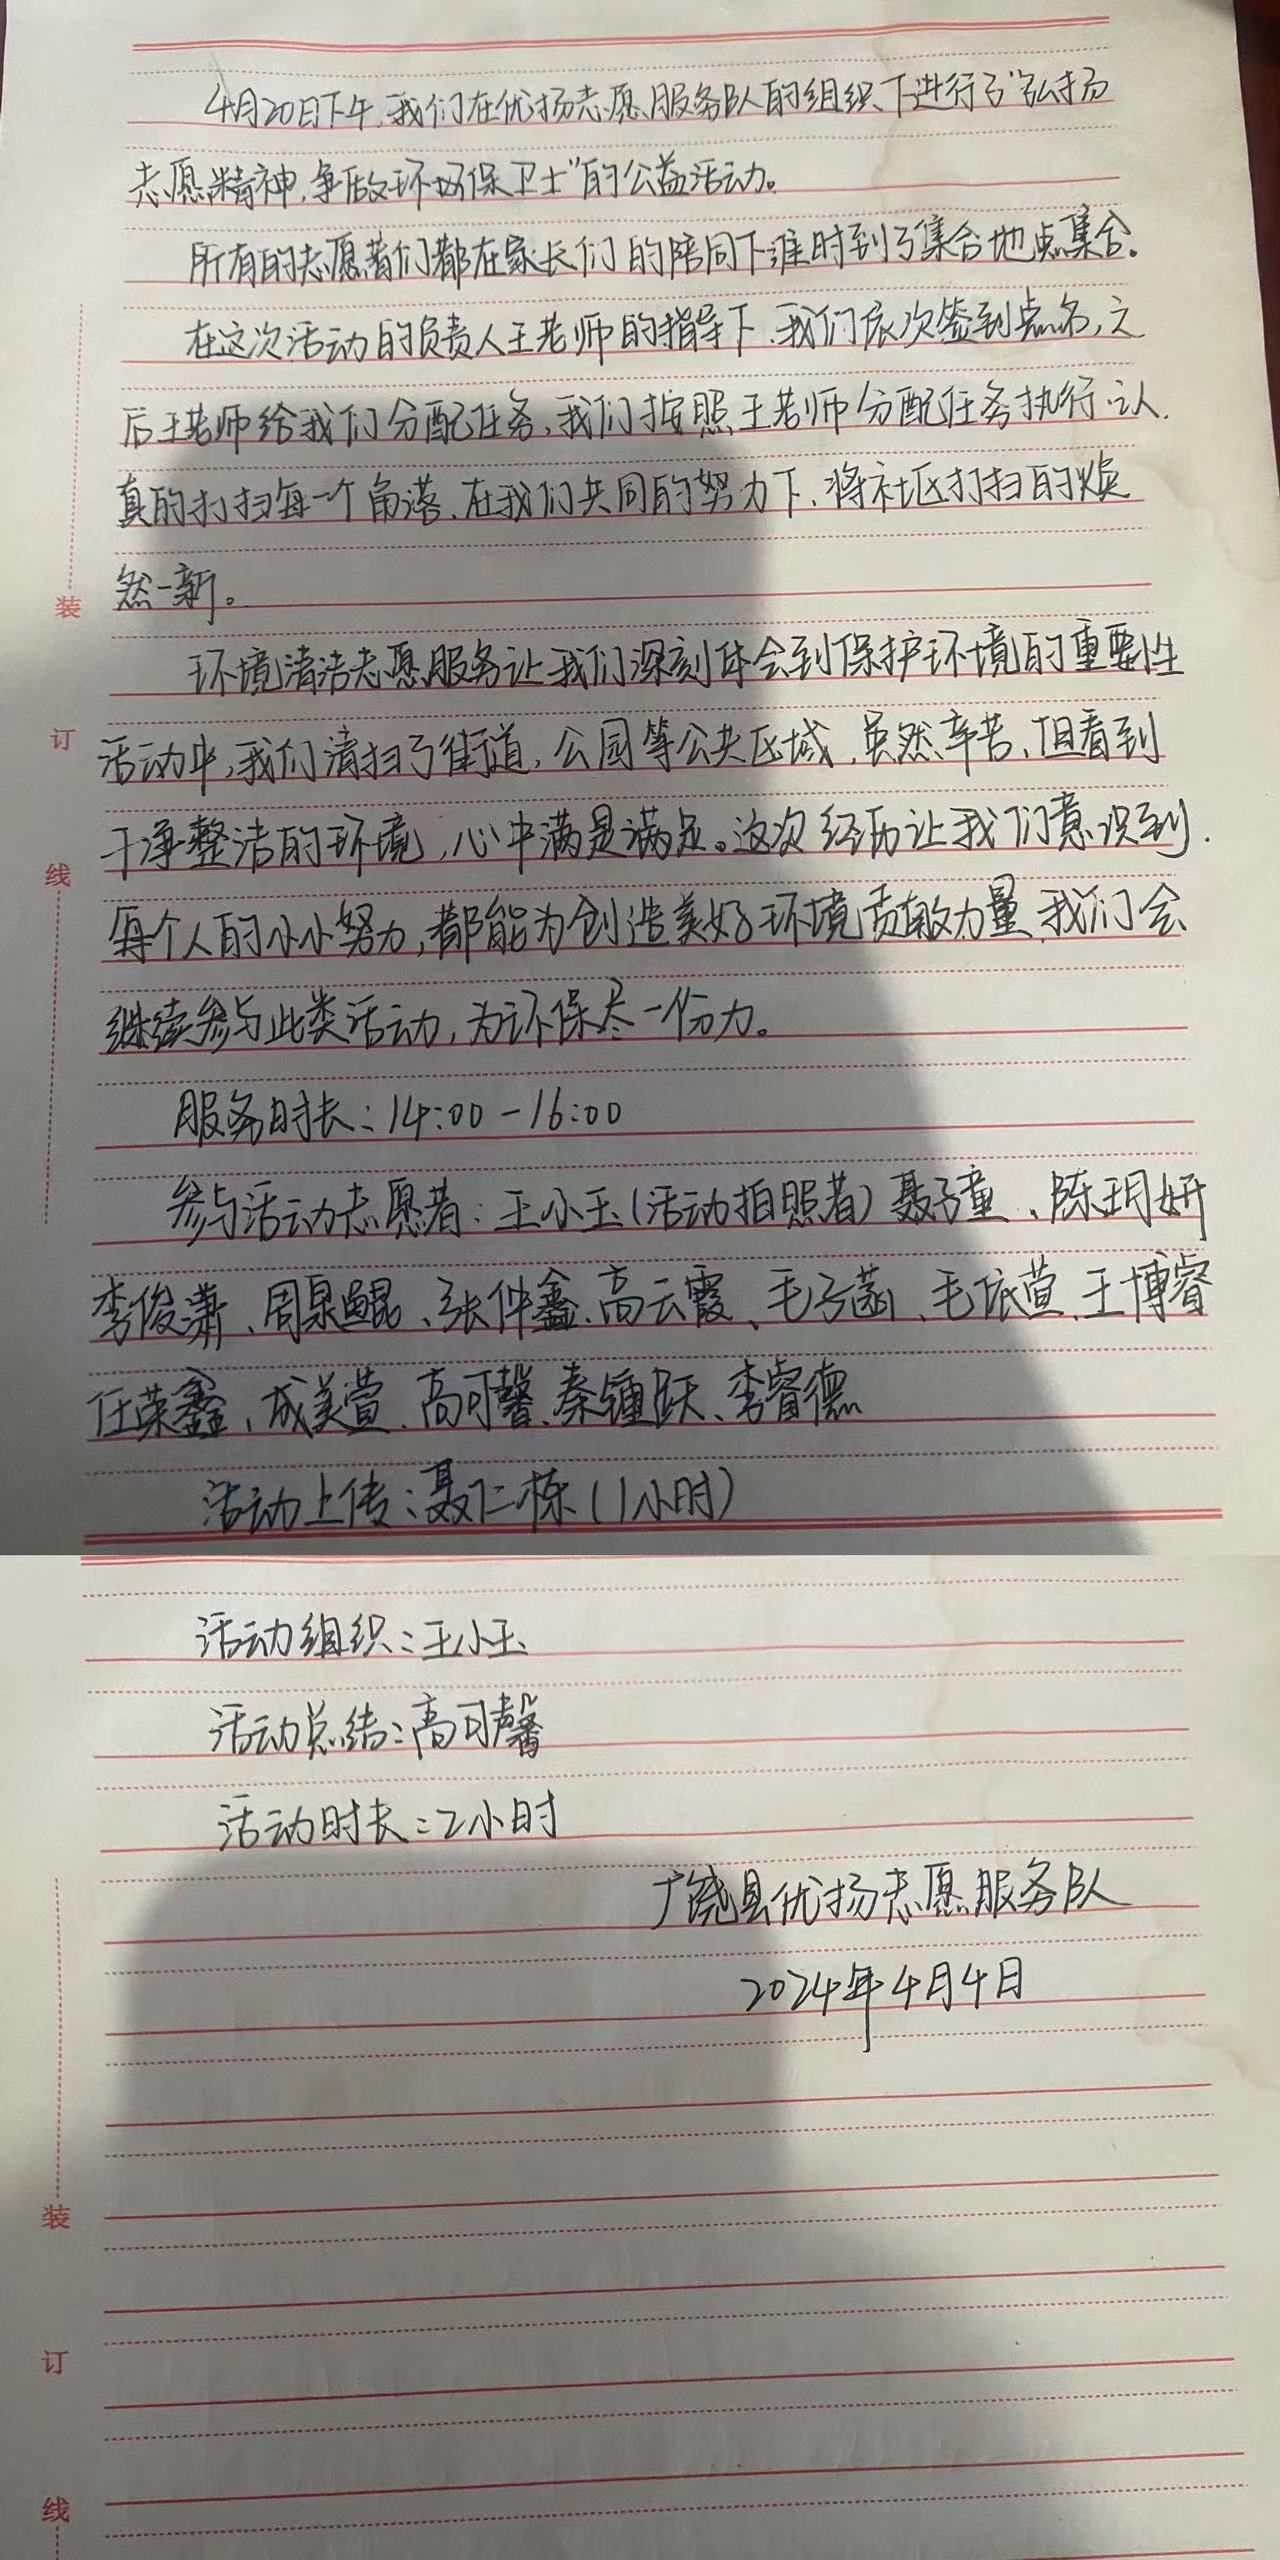 4月20日下午,我们在优扬志愿服务队的组织下进行了“弘扬
志愿精神,争做环境保卫士”的公益活动。
所有的志愿者们都在家长们的陪同下准时到了集合地点集合.
在这次活动的负责人王老师的指导下.我们依次签到点名,之
后王老师给我们分配任务,我们按照王老师分配任务执行.认
真的打扫每一个角落.在我们共同的努力下.将社区打扫的焕
然一新。
环境清洁志愿服务让我们深刻体会到保护环境的重要性
活动中,我们清扫了街道,公园等公共区域,虽然辛苦,但看到
干净整洁的环境,心中满是满足。这次经历让我们意识到.
每个人的小小努力,都能为创造美好环境贡献力量.我们会
继续参与此类活动,为环保尽一份力。
服务时长:14:00-16:00
参与活动志愿者:王小玉(活动拍照者)聂子童、陈玥妍
李俊潇、周泉鲲、张仲鑫、高云霞、毛子菡、毛依萱、王博睿
任荣鑫、成美萱、高可馨、秦锺跃、李睿德
活动上传:聂仁栋(1小时)
活动组织:王小玉
活动总结:高可馨
活动时长:2小时
广饶县优扬志愿服务队
2024年4月4日
装
订
线
装
订
线